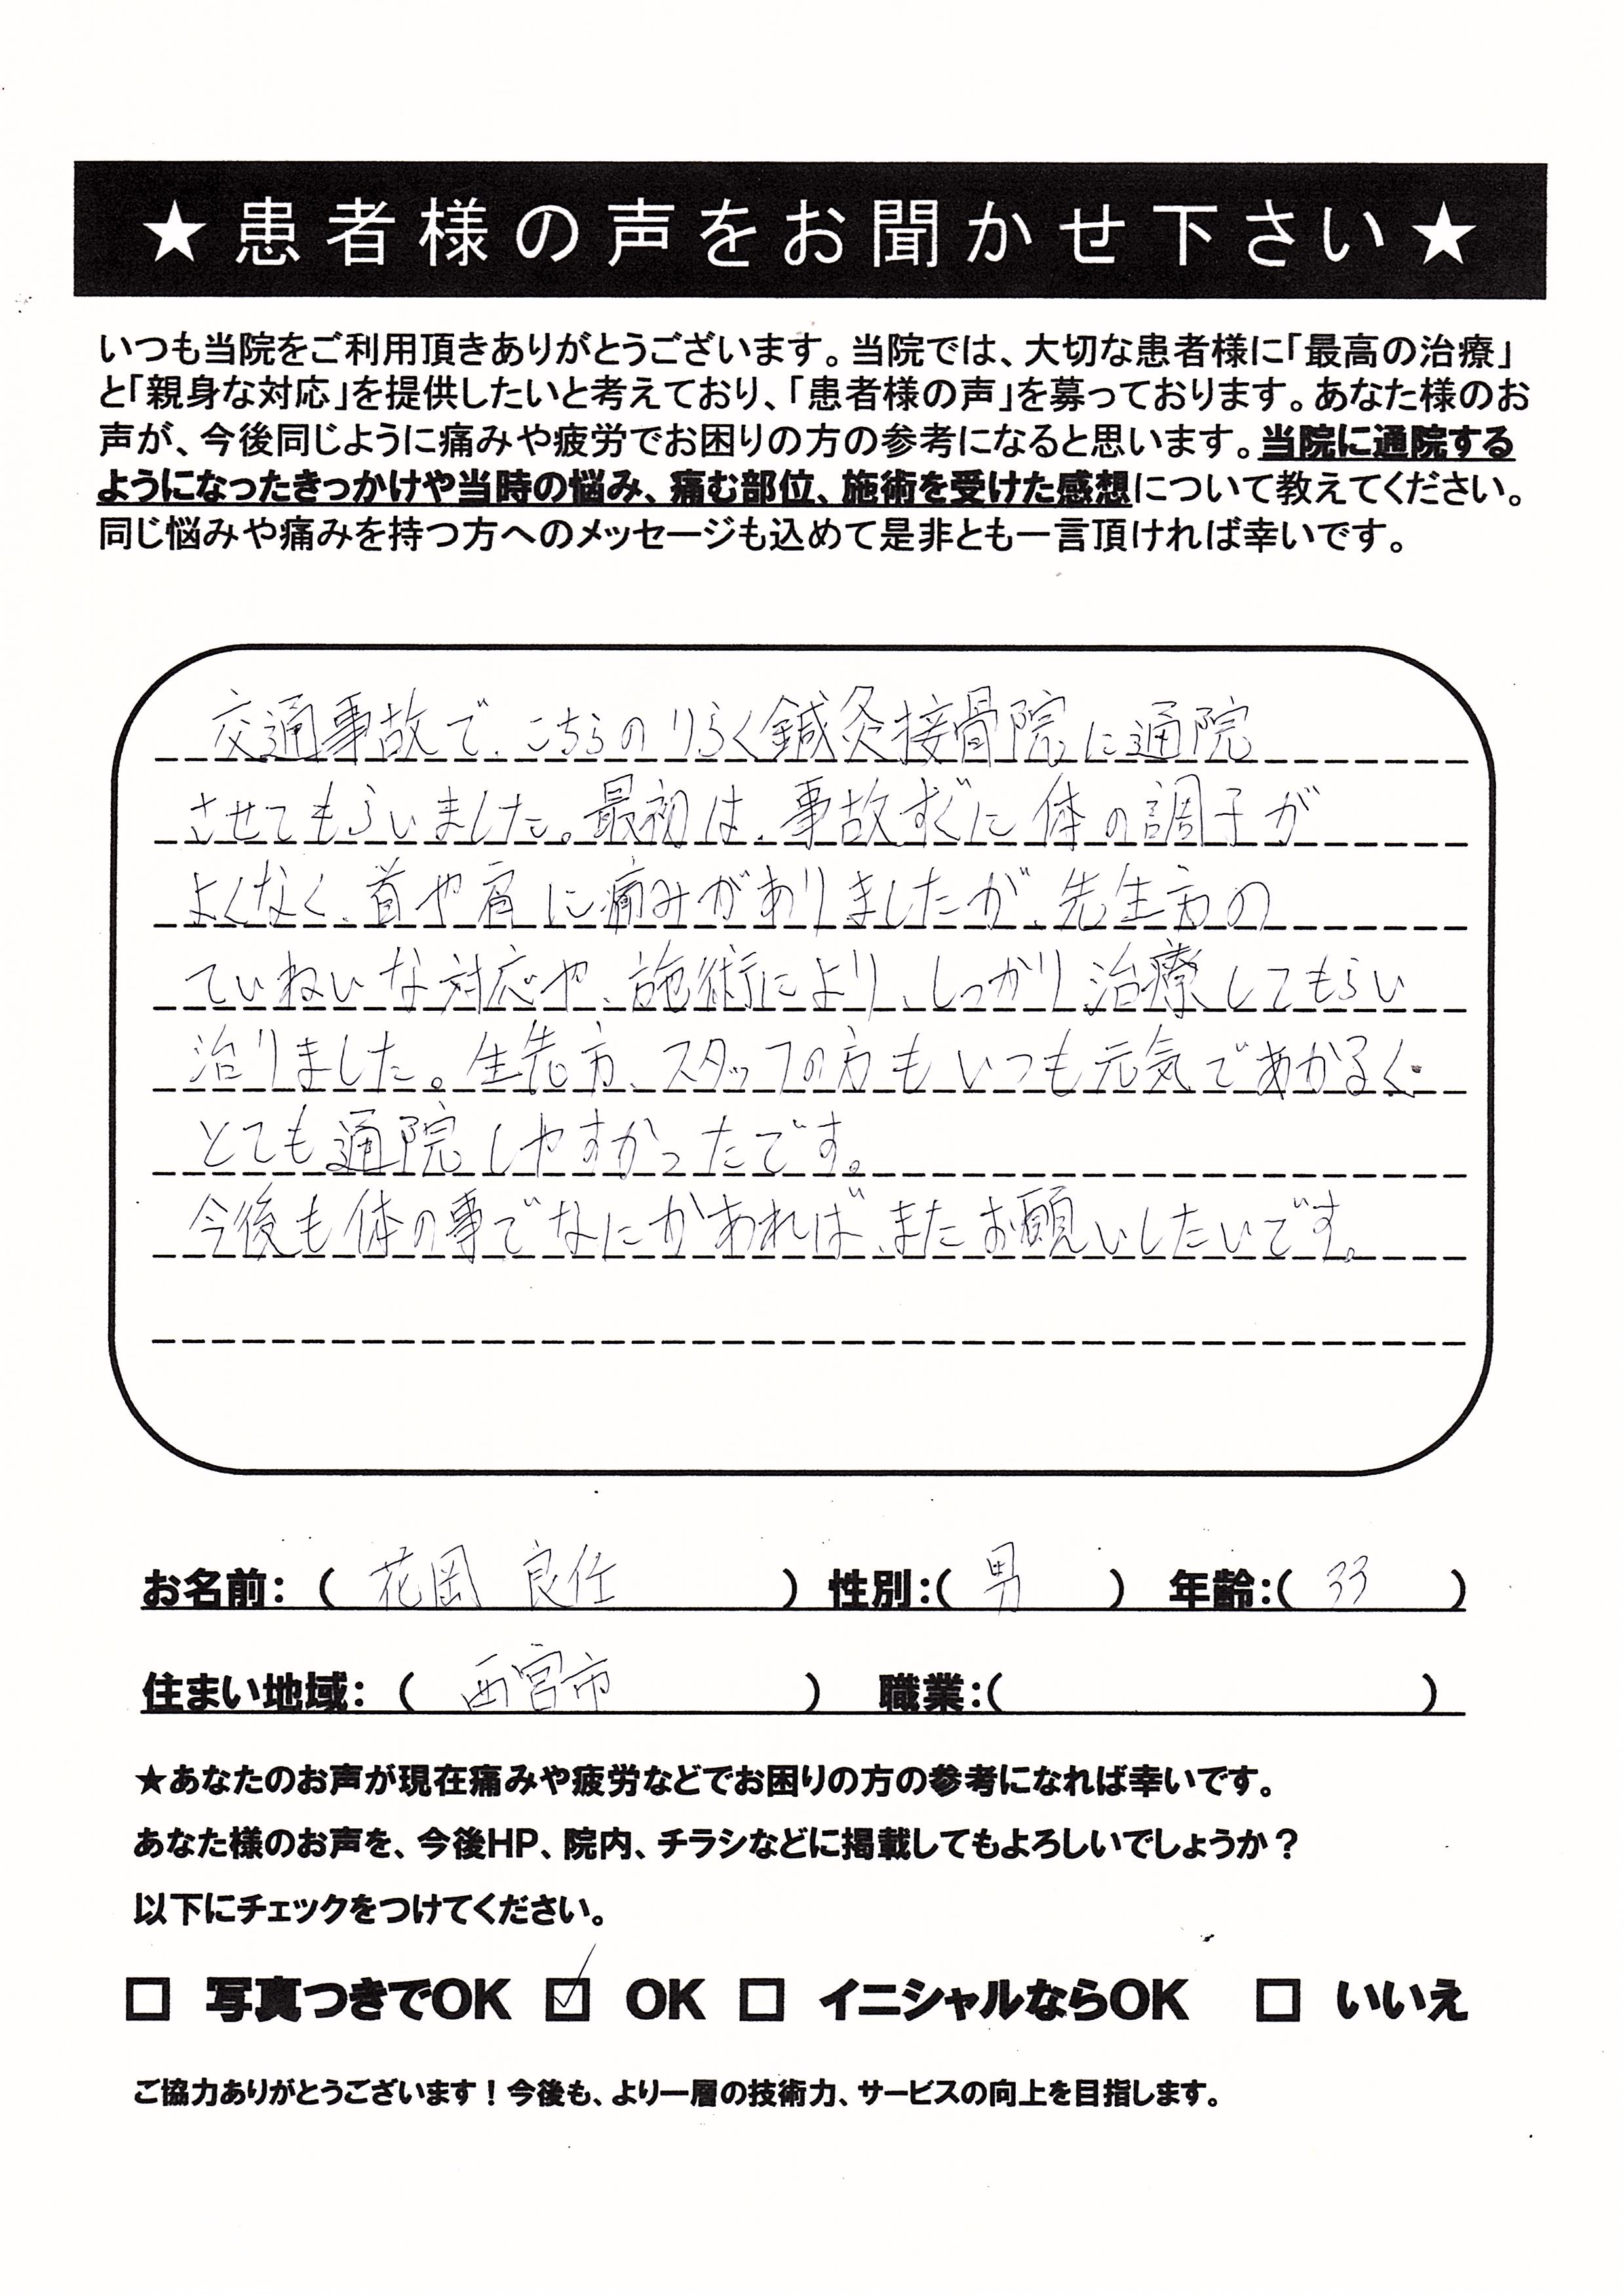 ★患者様の声をお聞かせ下さい★
いつも当院をご利用頂きありがとうございます。当院では、大切な患者様に「最高の治療」
と「親身な対応」を提供したいと考えており、「患者様の声」を募っております。あなた様のお
声が、今後同じように痛みや疲労でお困りの方の参考になると思います。当院に通院する
ようになったきっかけや当時の悩み、痛む部位、施術を受けた感想について教えてください。
同じ悩みや痛みを持つ方へのメッセージも込めて是非とも一言頂ければ幸いです。
交通事故で、こちらのりらく鍼灸接骨院に通院
させてもらいました。最初は、事故すぐに体の調子が
よくなく、首や肩に痛みがありましたが、先生方の
ていねいな対応や、施術により、しっかり治療してもらい
治りました。生先方、スタッフの方もいつも元気であかるく
とても通院しやすかったです。
今後も体の事でなにかあれば、またお願いしたいです。
お名前:( 花岡 良仕 ) 性別:( 男 ) 年齢:( 33 )
住まい地域:( 西宮市 ) 職業:( )
★あなたのお声が現在痛みや疲労などでお困りの方の参考になれば幸いです。
あなた様のお声を、今後HP、院内、チラシなどに掲載してもよろしいでしょうか？
以下にチェックをつけてください。
□ 写真つきでOK ☑ OK □ イニシャルならOK □ いいえ
ご協力ありがとうございます！今後も、より一層の技術力、サービスの向上を目指します。